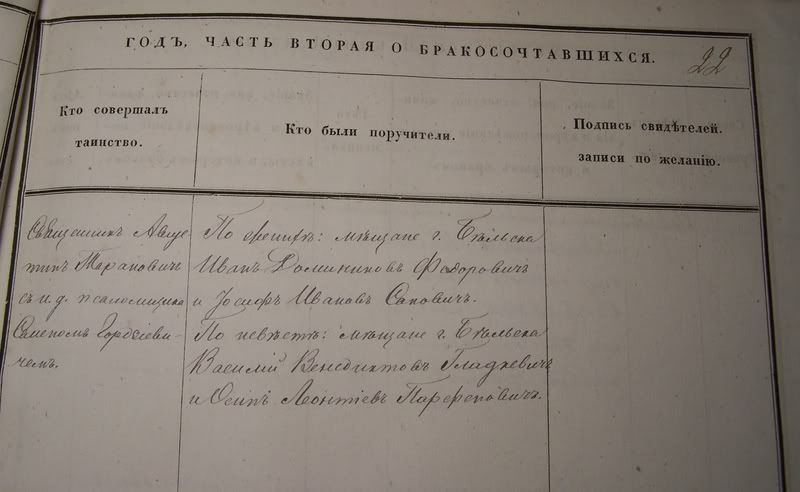 ГОДЪ, ЧАСТЬ ВТОРАЯ О БРАКОСОЧТАВШИХСЯ.
22
Кто совершалъ
таинство.
Кто были поручители.
Подпись свидѣтелей.
записи по желанію.
Священникъ Авгус
тинъ Тарановичъ
съ и. д. псаломщика
Семеномъ Гордзіеви-
чемъ.
По женихѣ: мѣщане г. Бѣльска
Иванъ Доминиковъ Федоровичъ
и Іосифъ Ивановъ Саповичъ.
По невѣстѣ: мѣщане г. Бѣльска
Василій Венедиктовъ Гладкевичъ
и Осипъ Леонтіевъ Парфеновичъ.